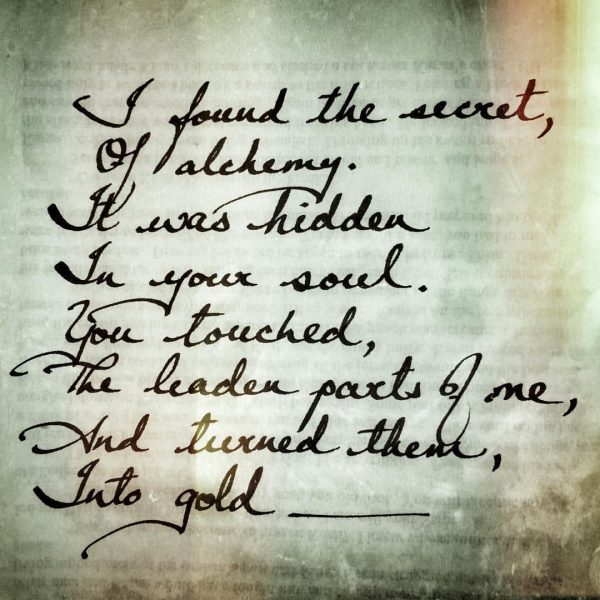 I found the secret,
Of alchemy.
It was hidden
In your soul.
You touched,
The leaden parts of me,
And turned them,
Into gold ⸺